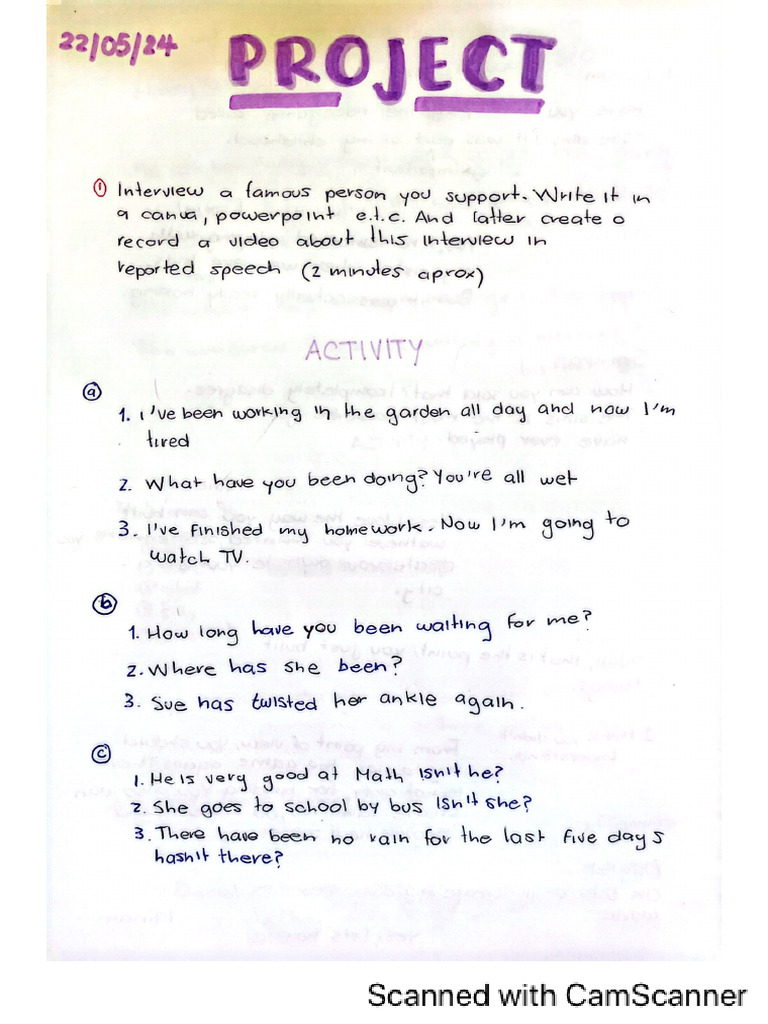 22/05/24
PROJECT
① Interview a famous person you support. Write it in
a canva, powerpoint e.t.c. And latter create o
record a video about this interview in
reported speech (2 minutes aprox)
ACTIVITY
ⓐ
1. I've been working in the garden all day and now I'm
tired
2. What have you been doing? You're all wet
3. I've finished my homework. Now I'm going to
watch TV.
ⓑ
1. How long have you been waiting for me?
2. Where has she been?
3. Sue has twisted her ankle again.
ⓒ
1. He is very good at Math isn't he?
2. She goes to school by bus isn't she?
3. There have been no rain for the last five days
hasn't there?
Scanned with CamScanner